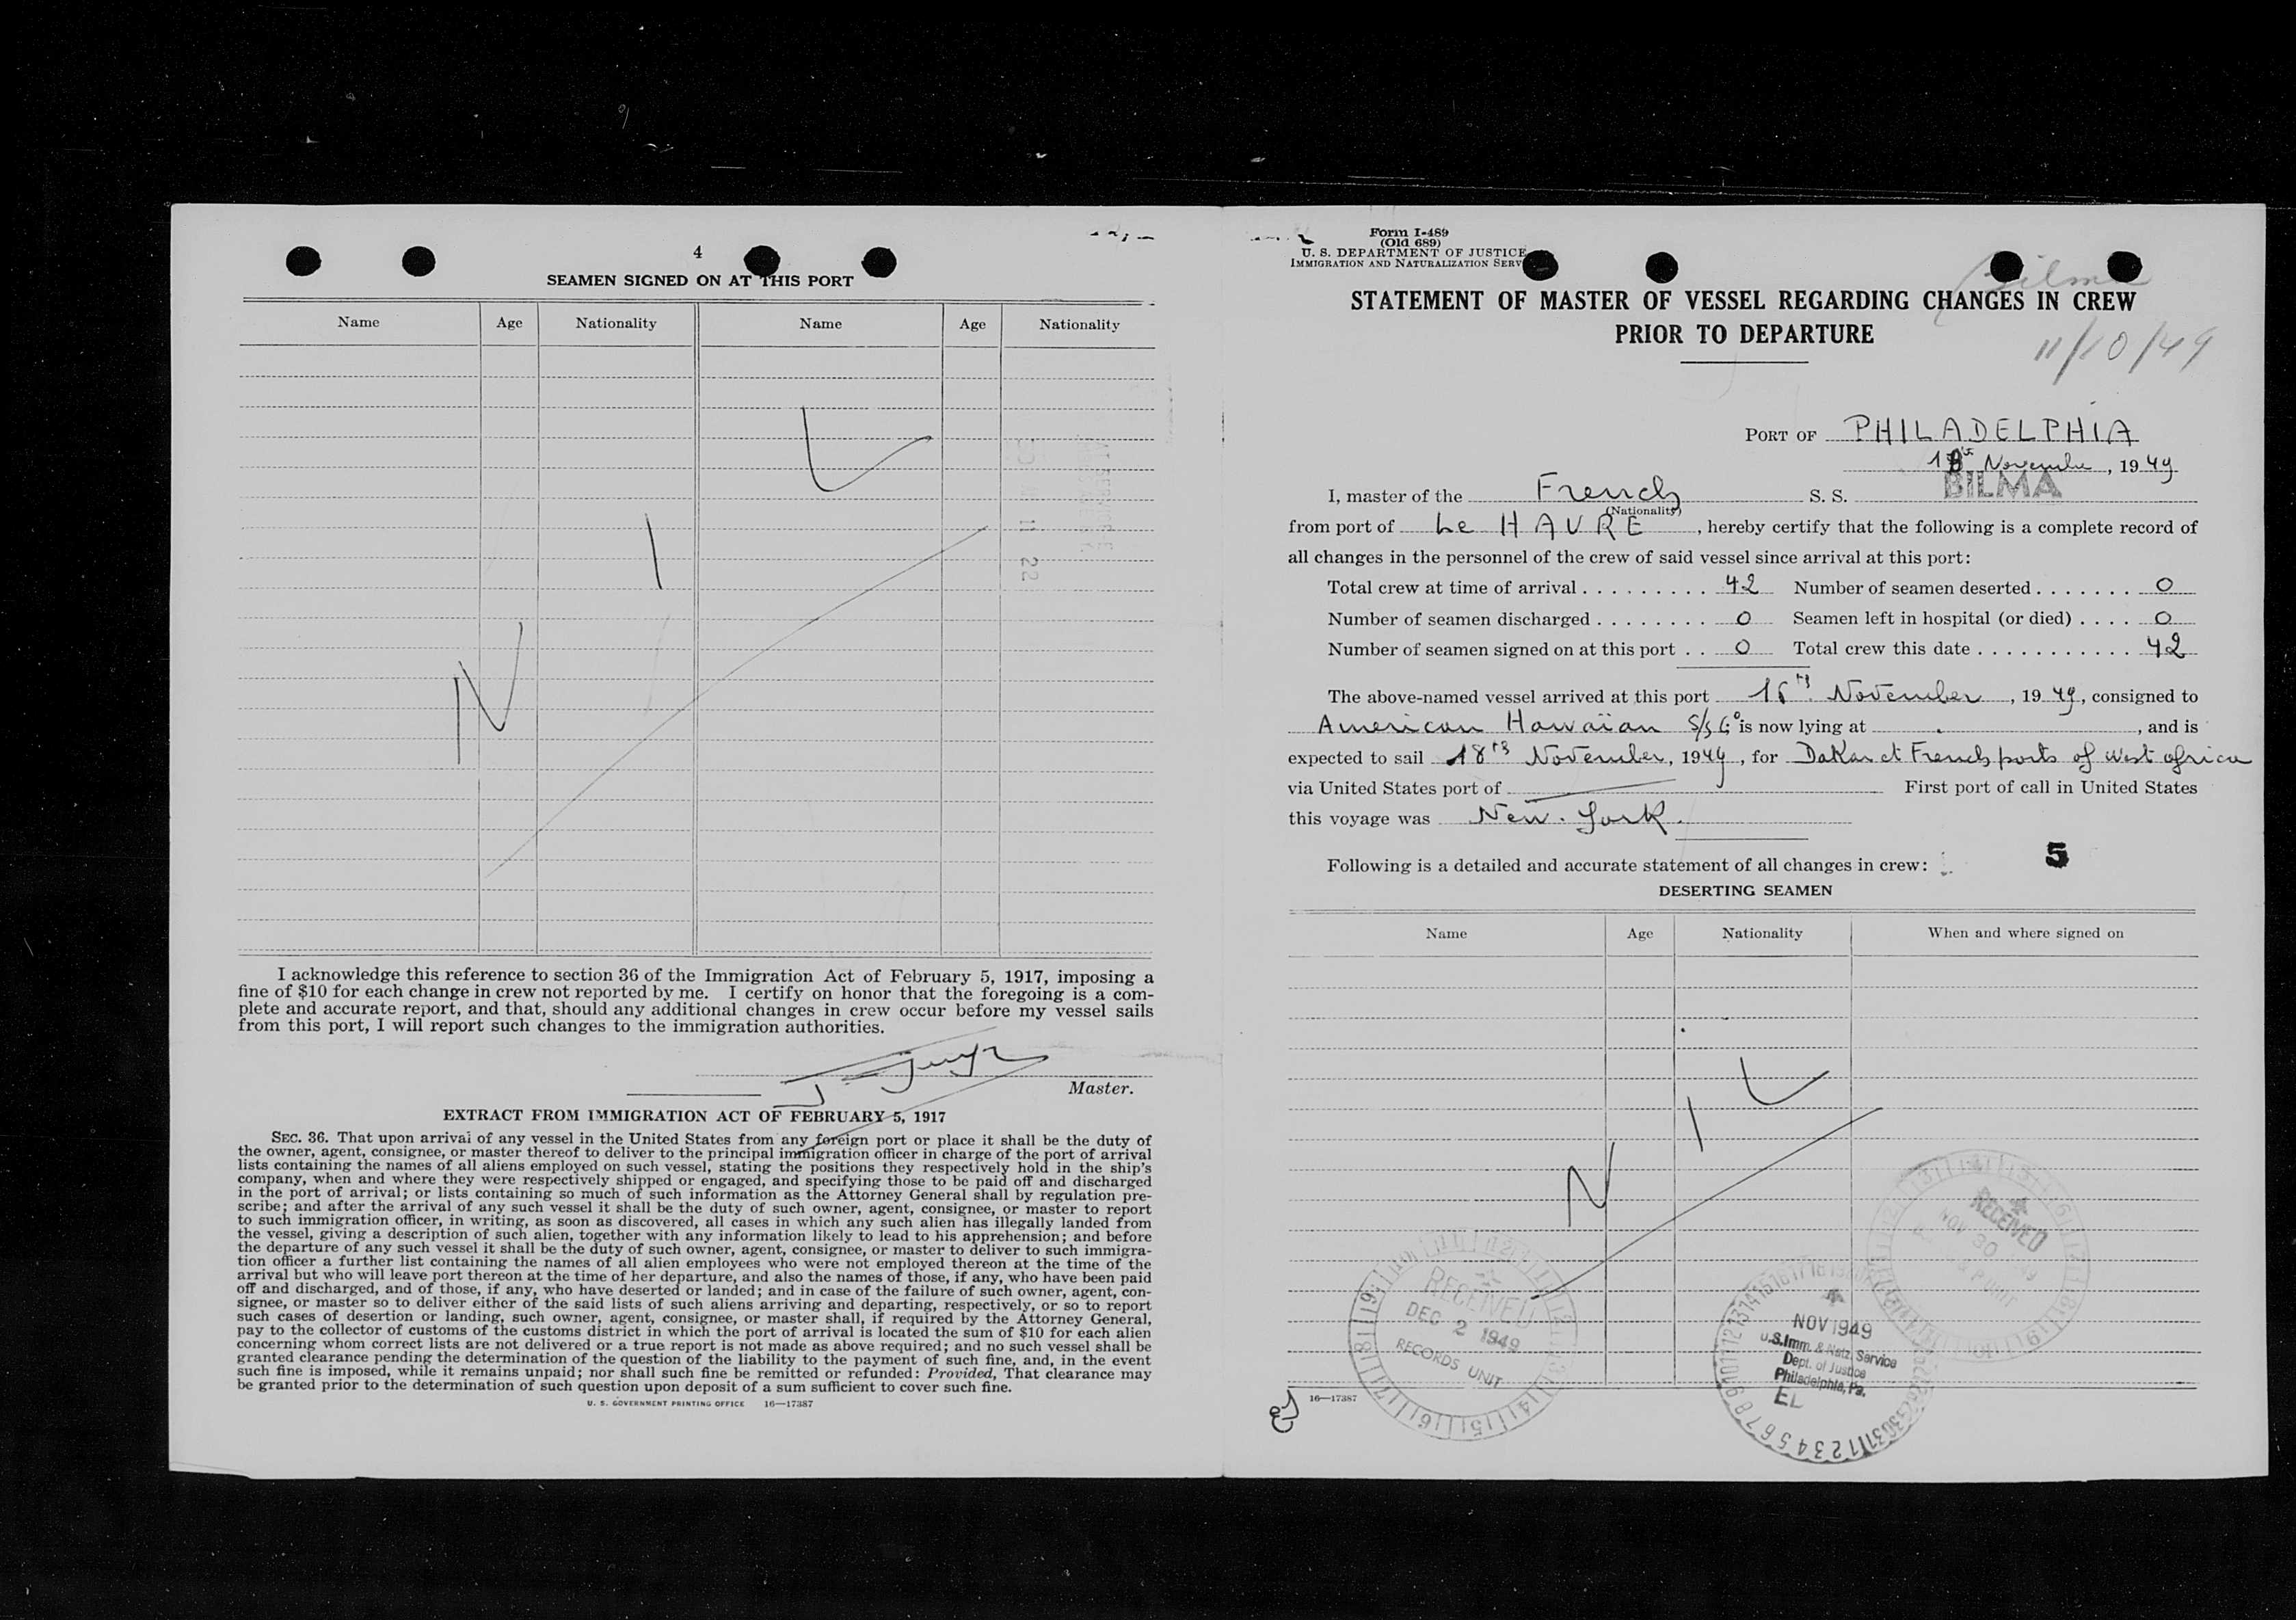 4
SEAMEN SIGNED ON AT THIS PORT
Name Age Nationality Name Age Nationality
N I L
I acknowledge this reference to section 36 of the Immigration Act of February 5, 1917, imposing a
fine of $10 for each change in crew not reported by me. I certify on honor that the foregoing is a com-
plete and accurate report, and that, should any additional changes in crew occur before my vessel sails
from this port, I will report such changes to the immigration authorities.
Master.
EXTRACT FROM IMMIGRATION ACT OF FEBRUARY 5, 1917
SEC. 36. That upon arrival of any vessel in the United States from any foreign port or place it shall be the duty of
the owner, agent, consignee, or master thereof to deliver to the principal immigration officer in charge of the port of arrival
lists containing the names of all aliens employed on such vessel, stating the positions they respectively hold in the ship's
company, when and where they were respectively shipped or engaged, and specifying those to be paid off and discharged
in the port of arrival; or lists containing so much of such information as the Attorney General shall by regulation pre-
scribe; and after the arrival of any such vessel it shall be the duty of such owner, agent, consignee, or master to report
to such immigration officer, in writing, as soon as discovered, all cases in which any such alien has illegally landed from
the vessel, giving a description of such alien, together with any information likely to lead to his apprehension; and before
the departure of any such vessel it shall be the duty of such owner, agent, consignee, or master to deliver to such immigra-
tion officer a further list containing the names of all alien employees who were not employed thereon at the time of the
arrival but who will leave port thereon at the time of her departure, and also the names of those, if any, who have been paid
off and discharged, and of those, if any, who have deserted or landed; and in case of the failure of such owner, agent, con-
signee, or master so to deliver either of the said lists of such aliens arriving and departing, respectively, or so to report
such cases of desertion or landing, such owner, agent, consignee, or master shall, if required by the Attorney General,
pay to the collector of customs of the customs district in which the port of arrival is located the sum of $10 for each alien
concerning whom correct lists are not delivered or a true report is not made as above required; and no such vessel shall be
granted clearance pending the determination of the question of the liability to the payment of such fine, and, in the event
such fine is imposed, while it remains unpaid; nor shall such fine be remitted or refunded: Provided, That clearance may
be granted prior to the determination of such question upon deposit of a sum sufficient to cover such fine.
U. S. GOVERNMENT PRINTING OFFICE 16—17387
Form I-489
(Old 689)
U. S. DEPARTMENT OF JUSTICE
IMMIGRATION AND NATURALIZATION SERV
Bilma
STATEMENT OF MASTER OF VESSEL REGARDING CHANGES IN CREW
PRIOR TO DEPARTURE
11/10/49
PORT OF PHILADELPHIA
18 November, 1949
I, master of the French S. S. BILMA
(Nationality)
from port of Le HAVRE, hereby certify that the following is a complete record of
all changes in the personnel of the crew of said vessel since arrival at this port:
Total crew at time of arrival . . . . . . . . . 42 Number of seamen deserted . . . . . . . 0
Number of seamen discharged . . . . . . . . 0 Seamen left in hospital (or died) . . . . 0
Number of seamen signed on at this port . . 0 Total crew this date . . . . . . . . . . . 42
The above-named vessel arrived at this port 16th November, 1949, consigned to
American Hawaïan S/S Co is now lying at , and is
expected to sail 18th November, 1949, for Dakar et French ports of West africa
via United States port of First port of call in United States
this voyage was New-York.
Following is a detailed and accurate statement of all changes in crew: 5
DESERTING SEAMEN
Name Age Nationality When and where signed on
N I L
RECEIVED
NOV 30
RECEIVED
DEC 2 1949
RECORDS UNIT
NOV 1949
U.S. Imm. & Natz. Service
Dept. of Justice
Philadelphia, Pa.
EL
16—17387